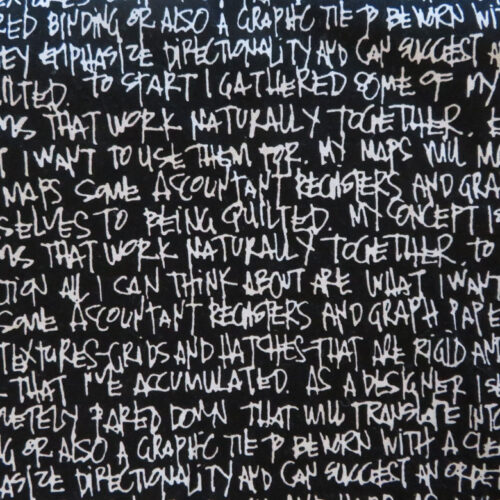 RED BINDING OR ALSO A GRAPHIC TIE TO BE WORN WIT
EY EMPHASIZE DIRECTIONALITY AND CAN SUGGEST A
UILTED. TO START I GATHERED SOME OF MY
NS THAT WORK NATURALLY TOGETHER.
T I WANT TO USE THEM FOR. MY MAPS WILL M
MAPS SOME ACCOUNTANT REGISTERS AND GRA
SELVES TO BEING QUILTED. MY CONCEPT I
NS THAT WORK NATURALLY TOGETHER. TO
TION ALL I CAN THINK ABOUT ARE WHAT I WANT
SOME ACCOUNTANT REGISTERS AND GRAPH PAPE
TEXTURES-GRIDS AND HATCHES-THAT ARE RIGID AN
L THAT I'VE ACCUMULATED. AS A DESIGNER I S
METELY PARED DOWN THAT WILL TRANSLATE INT
NG OR ALSO A GRAPHIC TIE TO BE WORN WITH A
ASIZE DIRECTIONALITY AND CAN SUGGEST AN